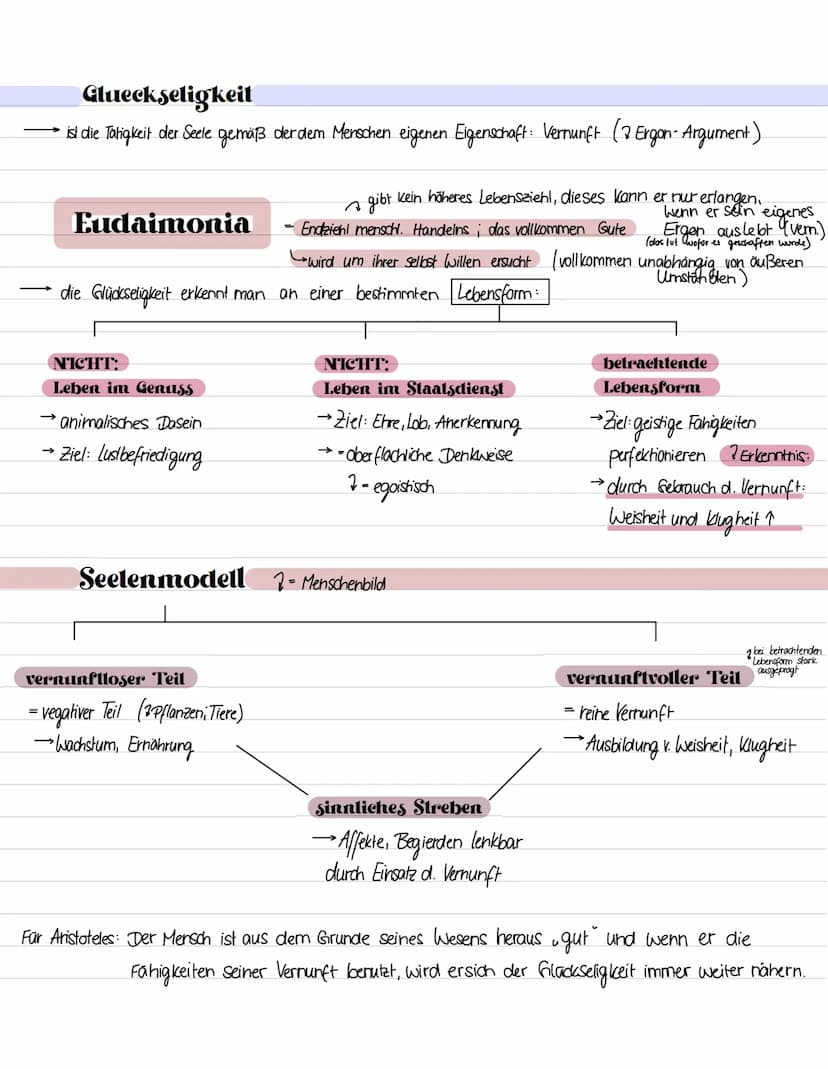 Glueckseligkeit
→ ist die Tätigkeit der Seele gemäß der dem Menschen eigenen Eigenschaft: Vernunft (↴ Ergon-Argument)
gibt kein höheres Lebensziehl, dieses kann er nur erlangen,
wenn er sein eigenes
Eudaimonia
= Endziehl menschl. Handelns ; das vollkommen Gute
Ergon auslebt (Vern.)
(das tut wofür es geschaffen wurde)
↳ wird um ihrer selbst willen ersucht (vollkommen unabhängig von äußeren
Umständen)
→ die Glückseligkeit erkennt man an einer bestimmten Lebensform:
NICHT:
Leben im Genuss
→ animalisches Dasein
→ Ziel: Lustbefriedigung
NICHT:
Leben im Staatsdienst
→ Ziel: Ehre, Lob, Anerkennung
→ = oberflächliche Denkweise
↴ = egoistisch
betrachtende
Lebensform
→ Ziel: geistige Fähigkeiten
perfektionieren ↴ Erkenntnis:
→ durch Gebrauch d. Vernunft:
Weisheit und Klugheit ↑
Seelenmodell ↴ = Menschenbild
vernunftloser Teil
= vegativer Teil (↴ Pflanzen, Tiere)
→ Wachstum, Ernährung
↴ bei betrachtenden
Lebensform stark
ausgeprägt
vernunftvoller Teil
= reine Vernunft
→ Ausbildung v. Weisheit, Klugheit
sinnliches Streben
→ Affekte, Begierden lenkbar
durch Einsatz d. Vernunft
Für Aristoteles: Der Mensch ist aus dem Grunde seines Wesens heraus „gut“ und wenn er die
Fähigkeiten seiner Vernunft benutzt, wird er sich der Glückseligkeit immer weiter nähern.